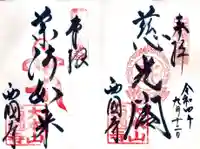 奉拝
慈光閣
西國寺
令和四年
九月十二日
奉拝
薬師如来
西國寺